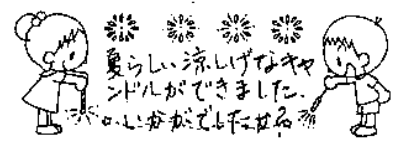 夏らしい涼しげなキャ
ンドルができました。
いかがでしたか?